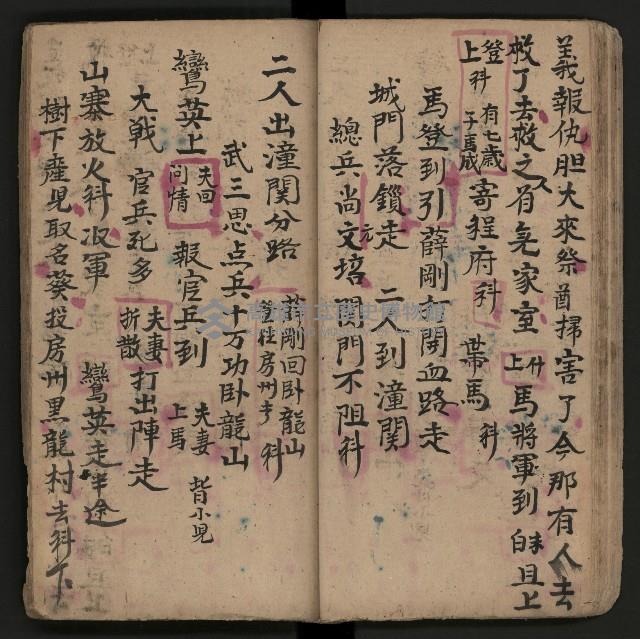 義報仇胆大來祭酋掃害了今那有人去
救了去救之人酋気家室 什上 馬將軍到 未白旦上
登科上 有七歲子馬成 寄程府科 帶馬科
馬登到引薛剛打開血路走
城門落鎖走 二人到潼関
總兵尚元文培関門不阻科
二人出潼関分路 薛剛回卧龍山 登往房州去科
武三思点兵十万功卧龍山
鸞英上 夫回问情 報官兵到 夫妻上馬 背小児
大戦 官兵死多 夫妻折散 打出陣走
山寨放火科収軍 鸞英走半途
樹下產児取名葵投房州黒龍村去科下
高雄市立歷史博物館